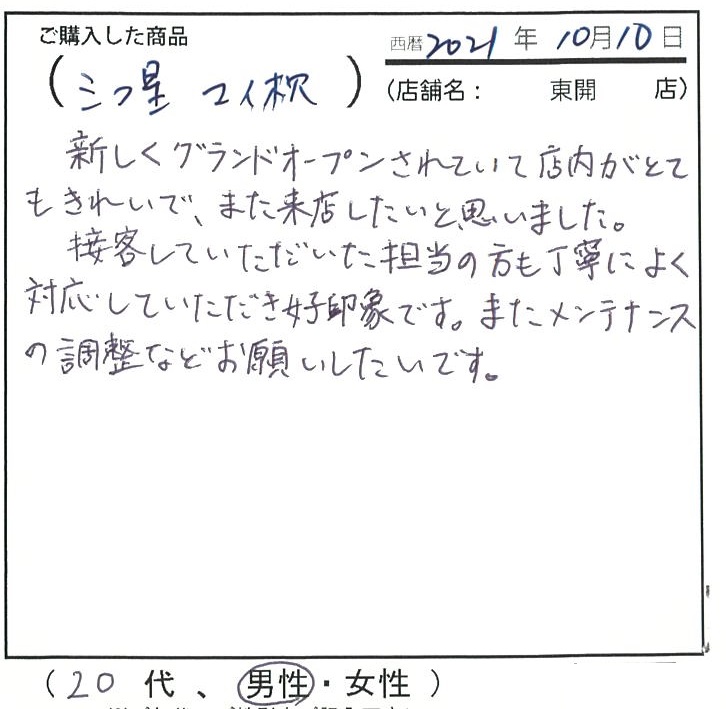 ご購入した商品
西暦2021年10月10日
(三つ星 マイ枕)
(店舗名: 東開 店)
新しくグランドオープンされていて店内がとて
もきれいで、また来店したいと思いました。
接客していただいた担当の方も丁寧によく
対応していただき好印象です。またメンテナンス
の調整などお願いしたいです。
(20代、男性・女性)